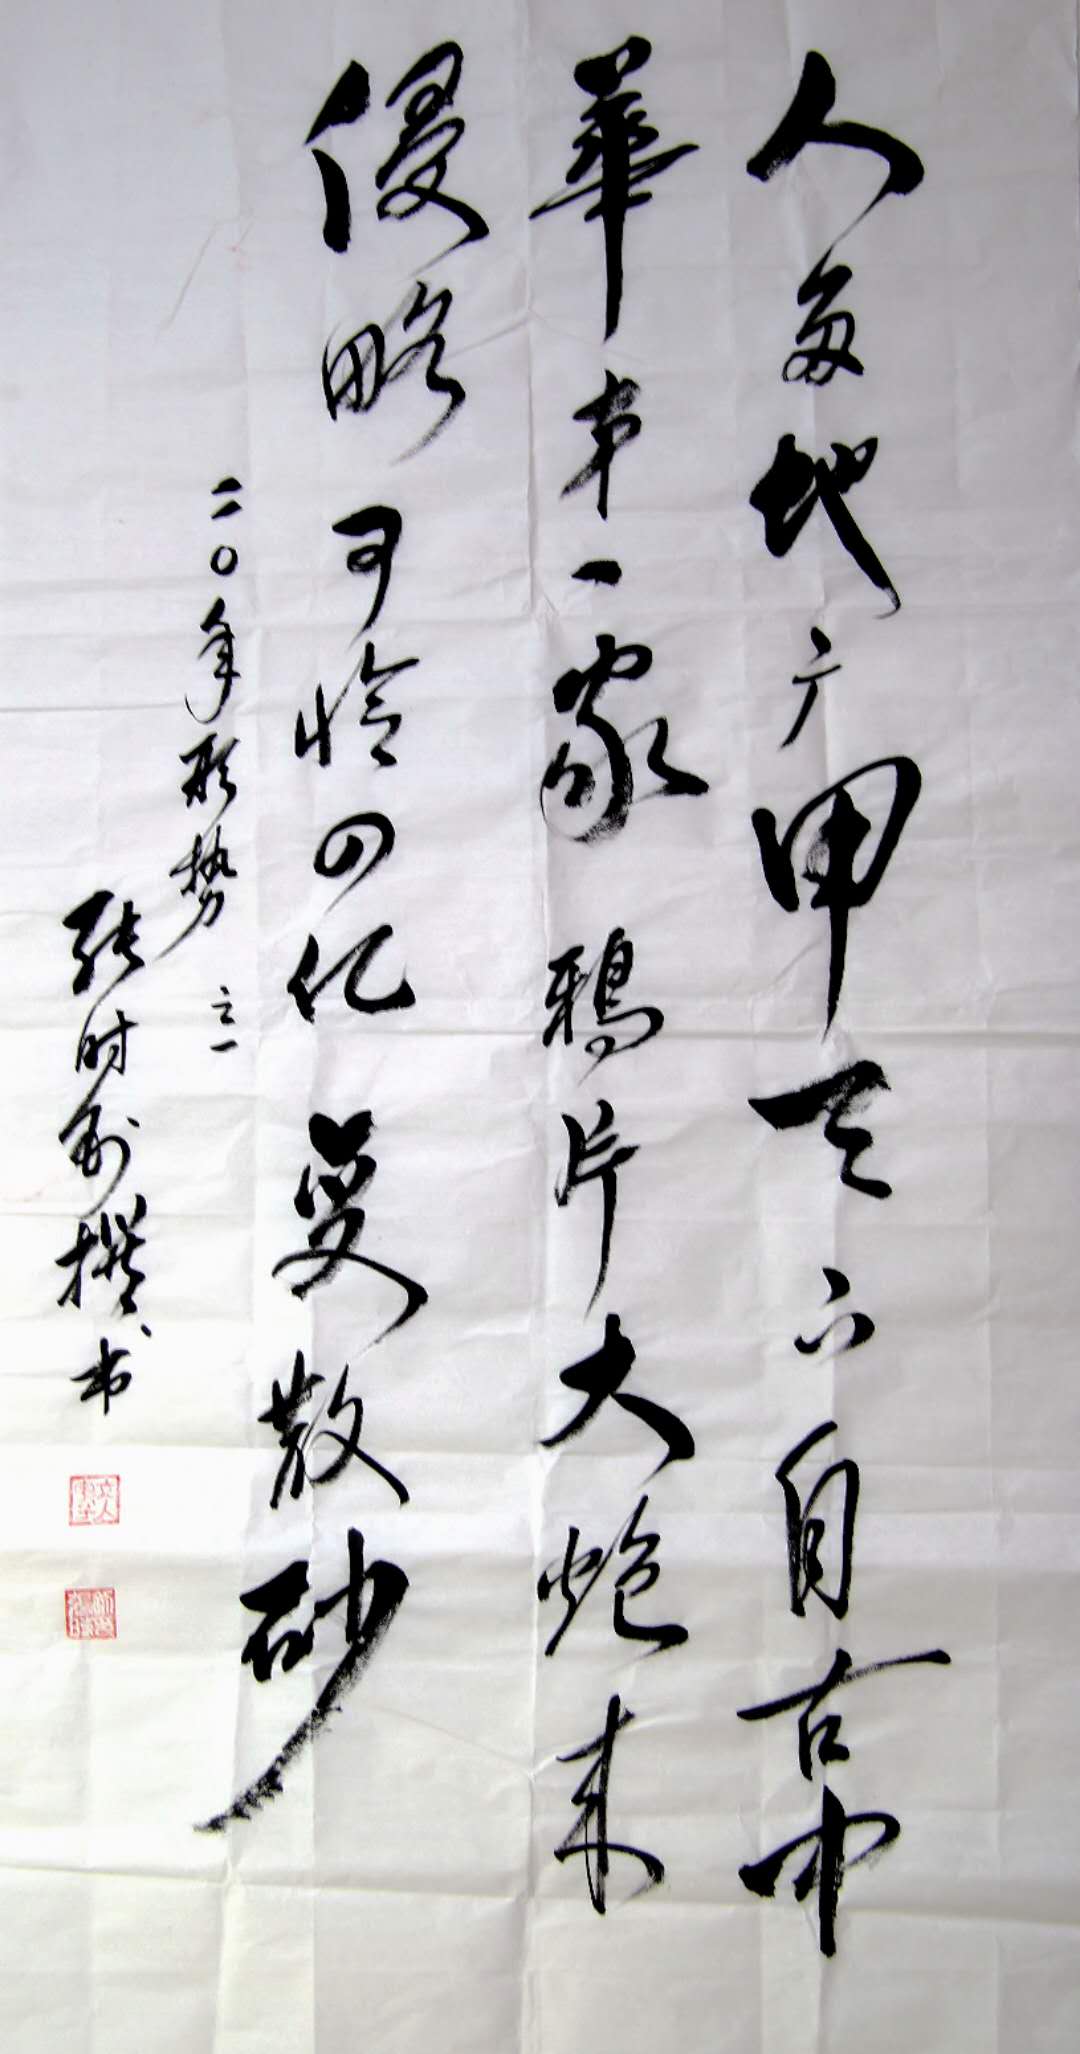 人多地广甲天下自古中
華第一家鴉片大炮来
侵略可怜四亿受散砂
二〇年形势之一
张时 撰书